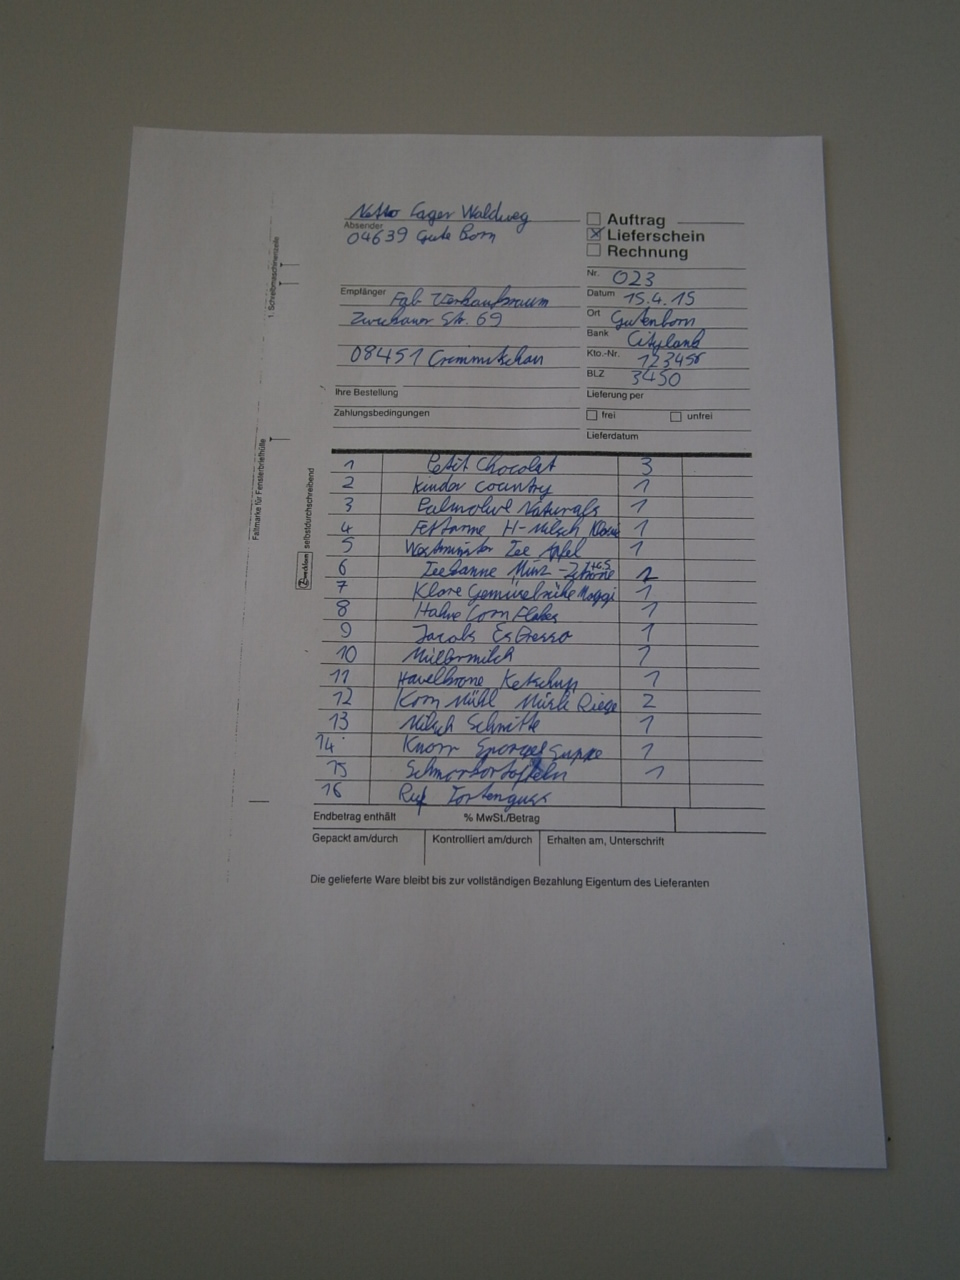 Netto Lager Waldweg
Absender
04639 Gute Born
Auftrag
Lieferschein
Rechnung
Nr. 023
Datum 15.4.15
Ort Gutenborn
Bank Cityland
Kto.-Nr. 123456
BLZ 3450
Empfänger Fab Verkaufsraum
Zwickauer Str. 69
08451 Crimmitschau
Ihre Bestellung
Zahlungsbedingungen
Lieferung per
frei unfrei
Lieferdatum
1. Schreibmaschinenzeile
Faltmarke für Fensterbriefhülle
Zweckform selbstdurchschreibend
1 Petit Chocolat 3
2 Kinder Country 1
3 Palmolive Naturals 1
4 H-Milch 1
5 Westminster Tee Apfel 1
6 Teekanne Minz-Zitrone 1
7 Klare Gemüsebrühe Maggi 1
8 Hahne Corn Flakes 1
9 Jacobs Espresso 1
10 Müllermilch 1
11 Havelkrone Ketchup 1
12 Korn Mühl Müsli Riege 2
13 Milch Schnitte 1
14 Knorr Spargel Suppe 1
15 1
16 Ruf Tortenguss
Endbetrag enthält % MwSt./Betrag
Gepackt am/durch Kontrolliert am/durch Erhalten am, Unterschrift
Die gelieferte Ware bleibt bis zur vollständigen Bezahlung Eigentum des Lieferanten